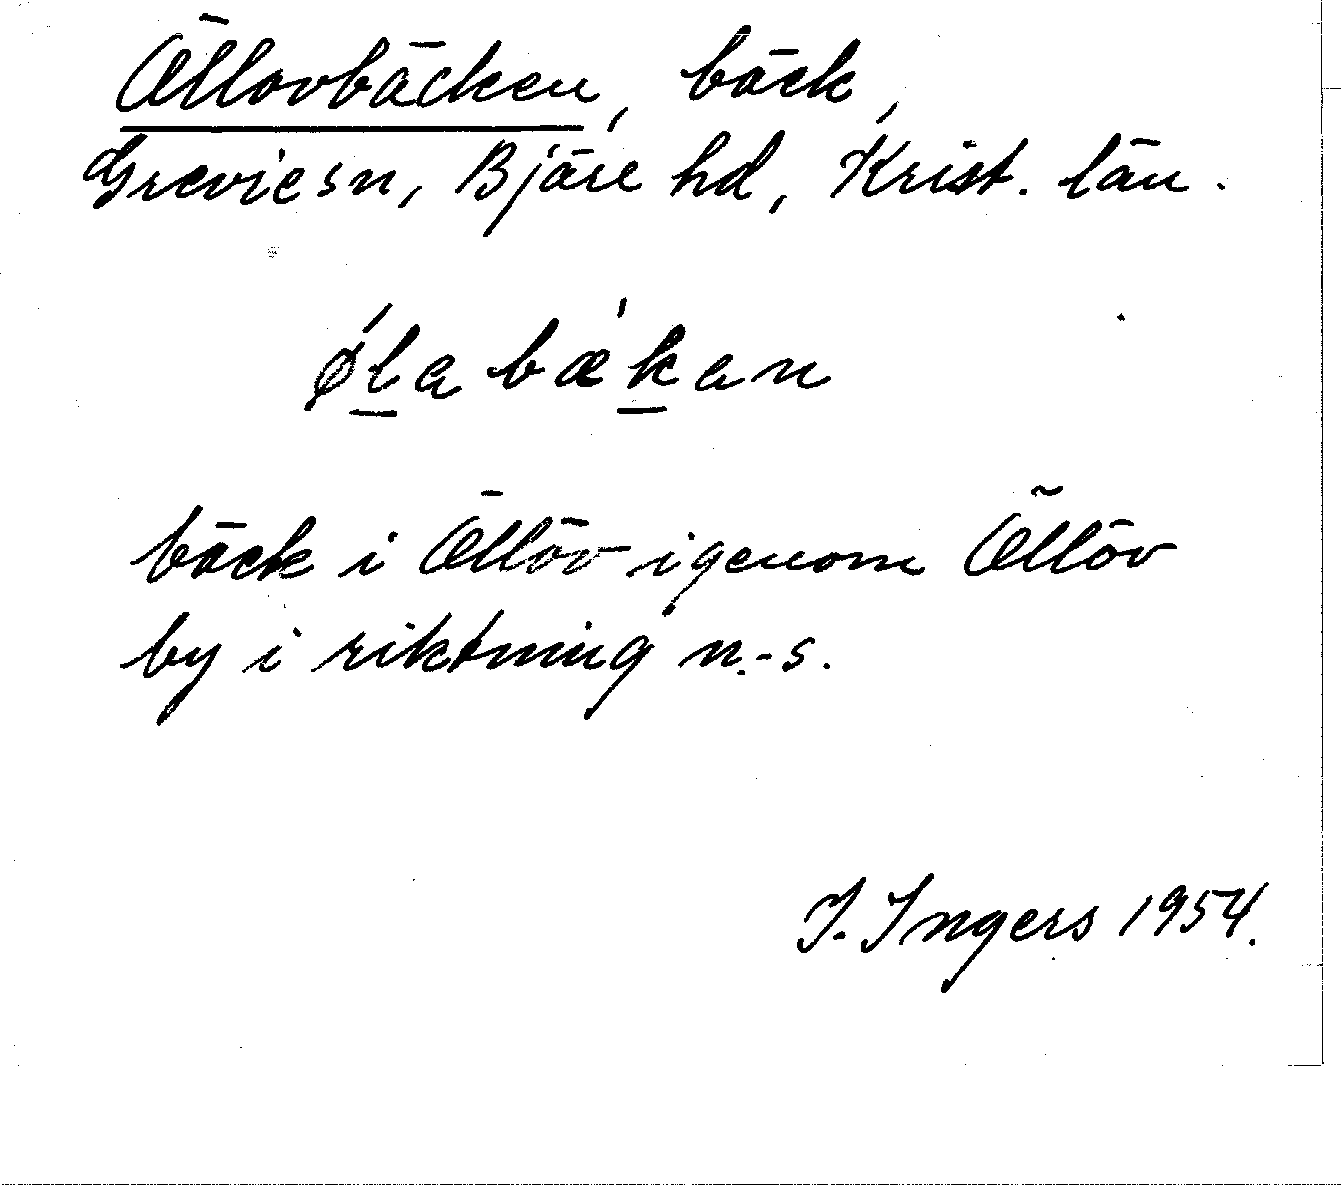 Öllovbäcken, bäck,
Grevie sn, Bjäre hd, Krist. län.
ǿl̲a bæ'k̲an
bäck i Öllöv igenom Öllöv
by i riktning n.-s.
I. Ingers 1954.